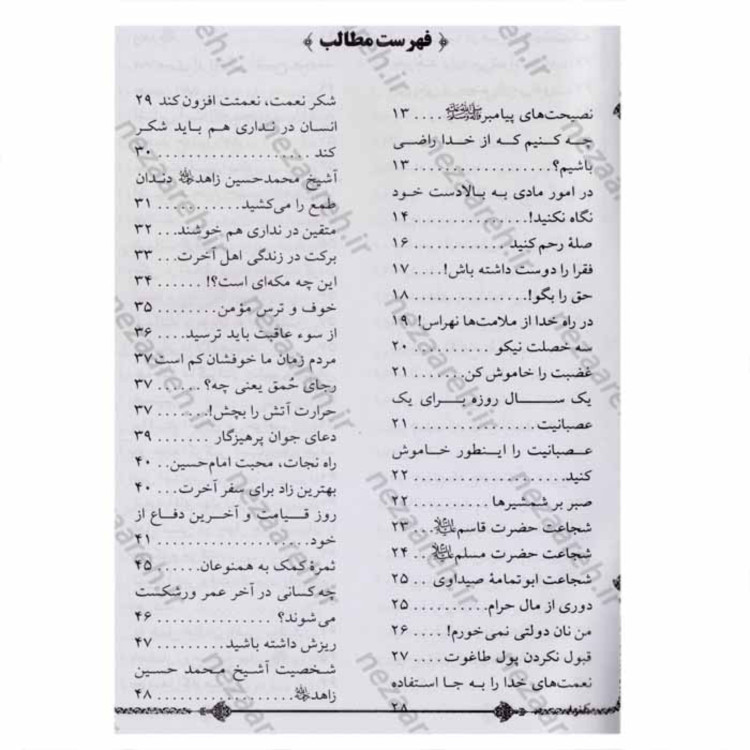 ﴿ فهرست مطالب ﴾
نصیحت‌های پیامبر ﷺ .... ۱۳
چه کنیم که از خدا راضی
باشیم؟ .................. ۱۳
در امور مادی به بالادست خود
نگاه نکنید! ............... ۱۴
صلهٔ رحم کنید ............ ۱۶
فقرا را دوست داشته باش! .... ۱۷
حق را بگو! ............... ۱۸
در راه خدا از ملامت‌ها نهراس! ۱۹
سه خصلت نیکو .......... ۲۰
غضبت را خاموش کن ....... ۲۱
یک ســـال روزه بـــرای یک
عصبانیت ................ ۲۱
عصبانیت را اینطور خاموش
کنید .................... ۲۲
صبر بر شمشیرها .......... ۲۲
شجاعت حضرت قاسم علیه‌السلام ... ۲۳
شجاعت حضرت مسلم علیه‌السلام .. ۲۴
شجاعت ابوثمامهٔ صیداوی .. ۲۵
دوری از مال حرام .......... ۲۵
من نان دولتی نمی‌خورم! .... ۲۶
قبول نکردن پول طاغوت .... ۲۷
نعمت‌های خدا را به جا استفاده
کنید ۲۸
شکر نعمت، نعمتت افزون کند ۲۹
انسان در نداری هم باید شکر
کند .................... ۳۰
آشیخ محمدحسین زاهد دندان
طمع را می‌کشید ........... ۳۱
متقین در نداری هم خوشند .. ۳۲
برکت در زندگی اهل آخرت ... ۳۳
این چه مکه‌ای است؟! ...... ۳۴
خوف و ترس مؤمن ......... ۳۵
از سوء عاقبت باید ترسید .... ۳۶
مردم زمان ما خوفشان کم است ۳۷
رجای حُمق یعنی چه؟ ...... ۳۷
حرارت آتش را بچش! ....... ۳۷
دعای جوان پرهیزگار ....... ۳۹
راه نجات، محبت امام حسین .. ۴۰
بهترین زاد برای سفر آخرت ... ۴۰
روز قیامت و آخرین دفاع از
خود .................... ۴۱
ثمرهٔ کمک به همنوعان ..... ۴۵
چه کسانی در آخر عمر ورشکست
می‌شوند؟ ................ ۴۶
ریزش داشته باشید ......... ۴۷
شخصیت آشیخ محمد حسین
زاهد .................. ۴۸
nezaareh.ir